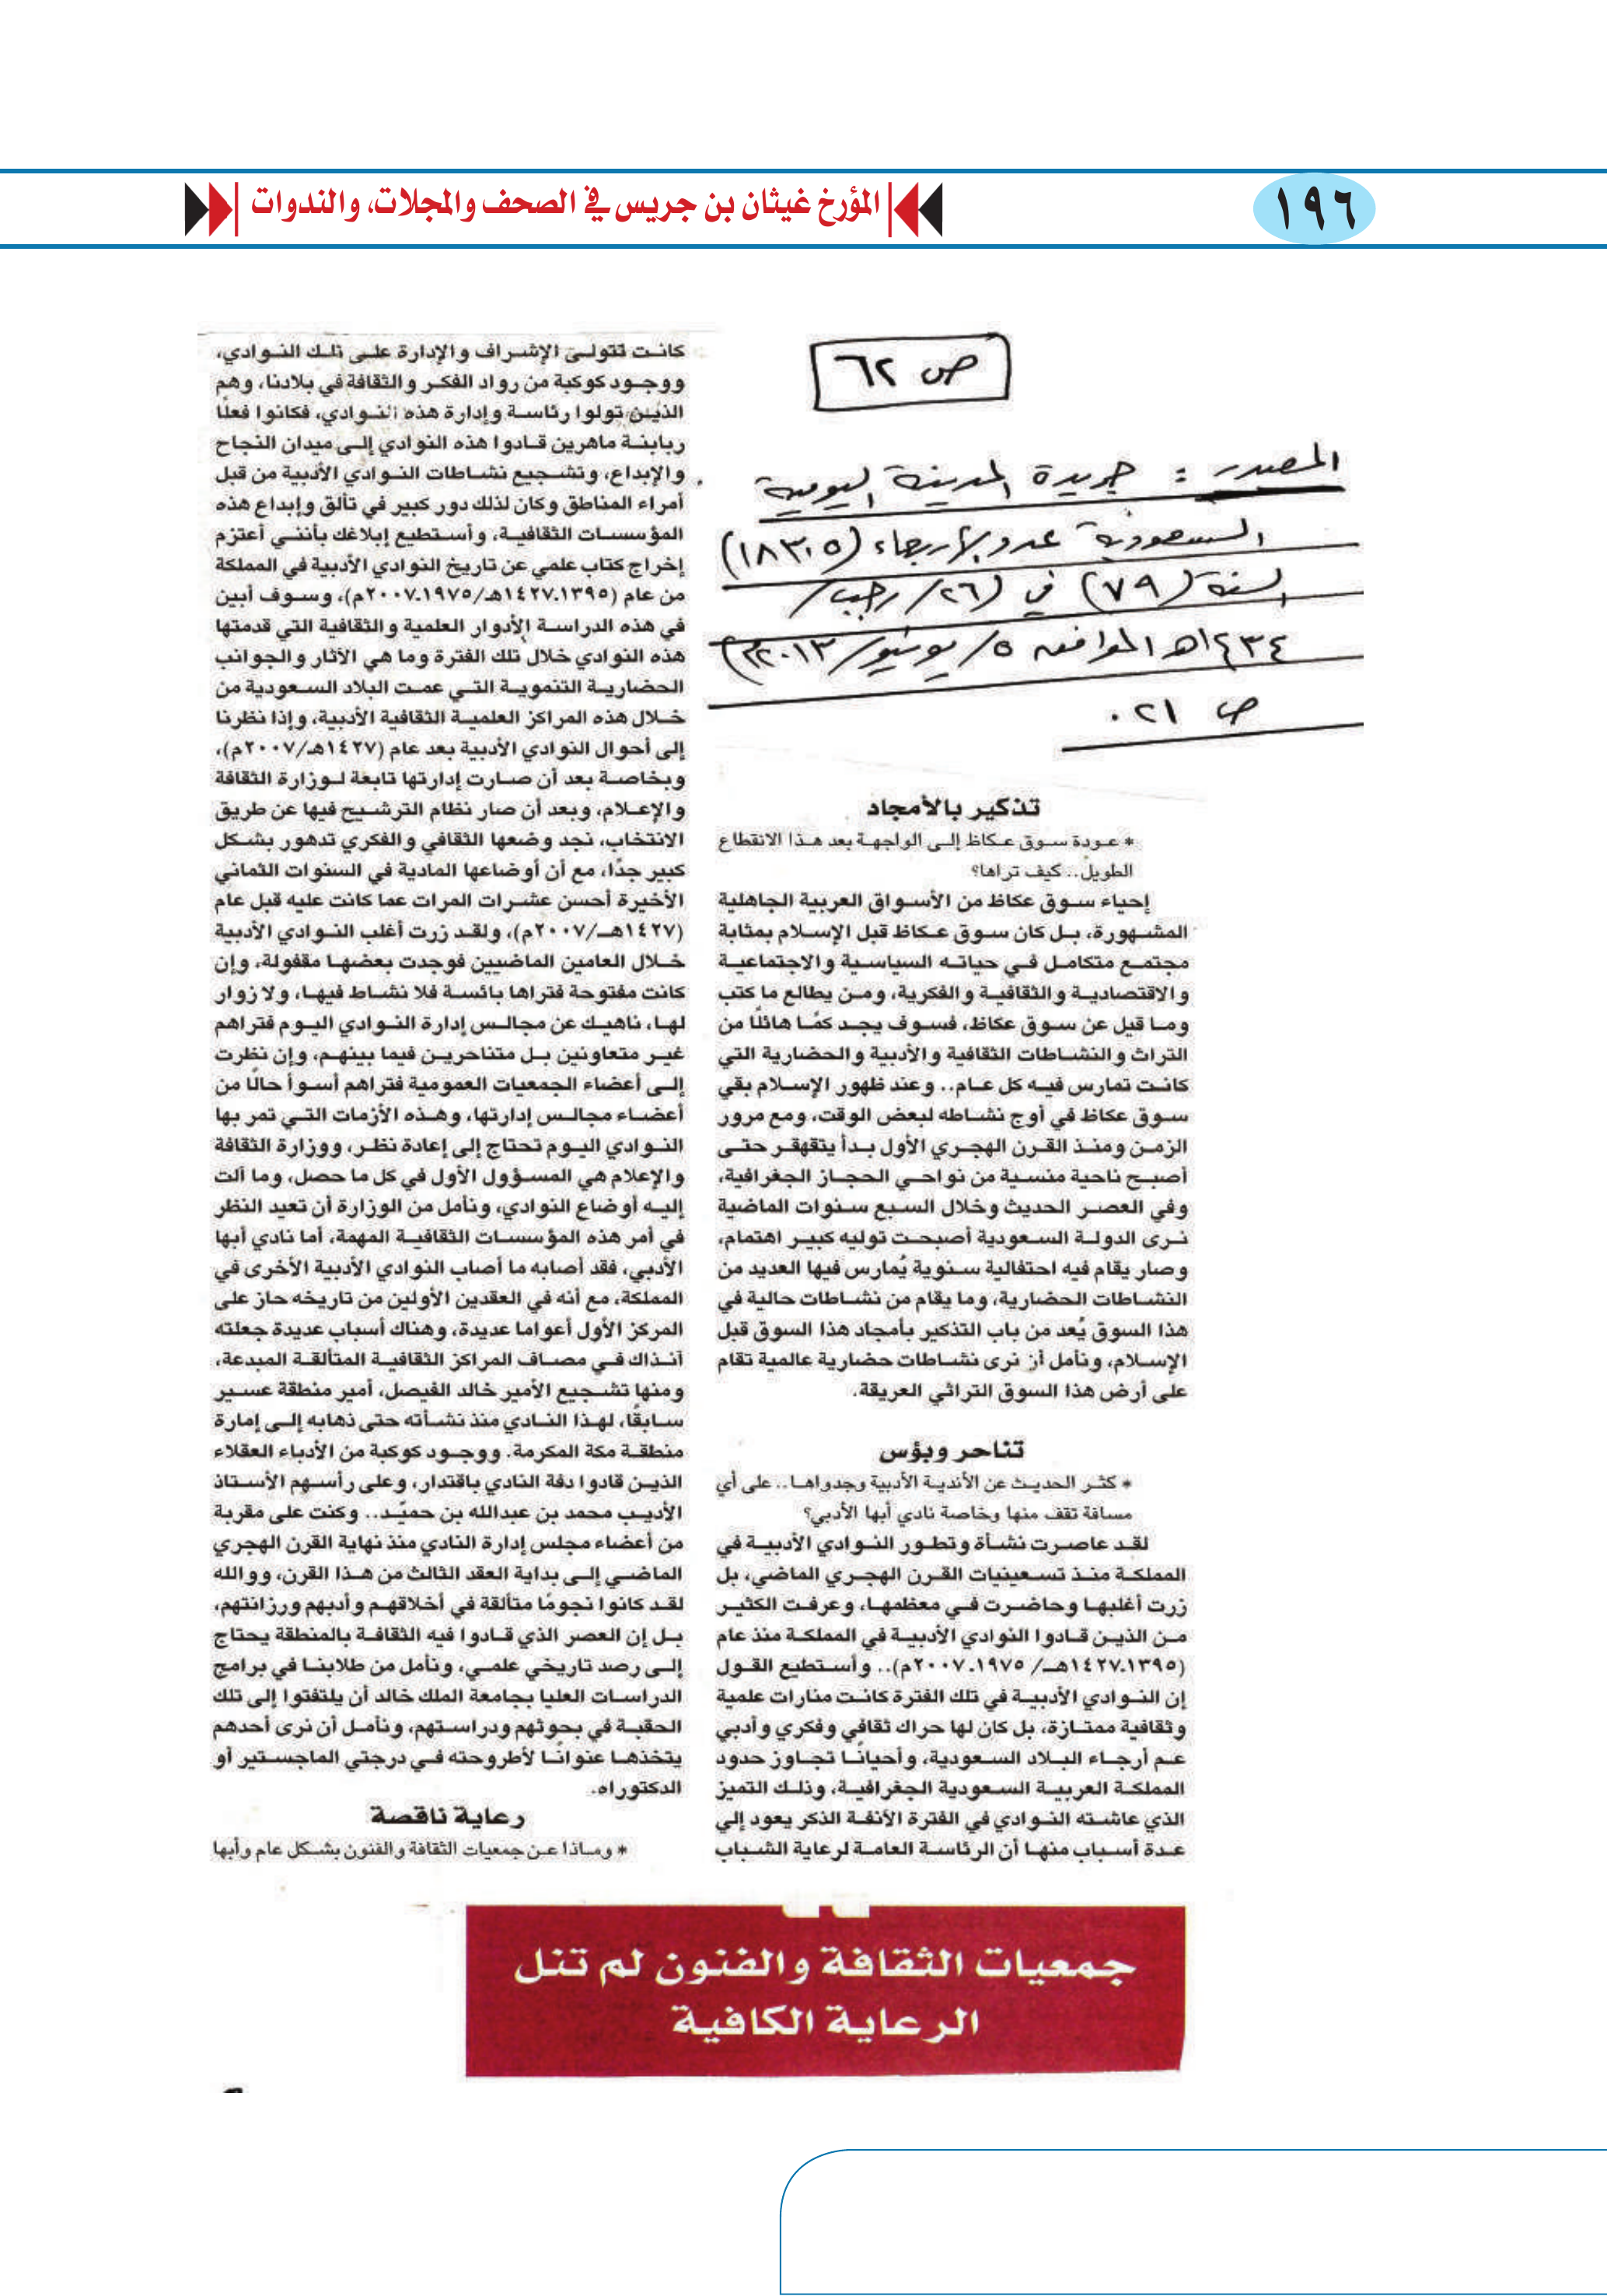 ١٩٦
المؤرخ غيثان بن جريس في الصحف والمجلات، والندوات
ص ٦٢
المصدر : جريدة المدينة اليومية
السعودية عدد الأربعاء (١٨٣٠٥)
السنة (٧٩) في (٢٦/ رجب/
١٤٣٤هـ الموافق ٥/ يونيو/ ٢٠١٣م)
ص ٢١.
تذكير بالأمجاد
* عـودة سـوق عـكاظ إلـى الواجهـة بعد هـذا الانقطاع
الطويل.. كيف تراها؟
إحياء سـوق عكاظ من الأسـواق العربية الجاهلية
المشـهورة، بـل كان سـوق عـكاظ قبل الإسـلام بمثابة
مجتمـع متكامـل فـي حياتـه السياسـية والاجتماعيـة
والاقتصاديـة والثقافيـة والفكرية، ومـن يطالع ما كتب
ومـا قيل عن سـوق عكاظ، فسـوف يجـد كمًـا هائلًا من
التراث والنشـاطات الثقافية والأدبية والحضارية التي
كانـت تمارس فيـه كل عـام.. وعند ظهور الإسـلام بقي
سـوق عكاظ في أوج نشـاطه لبعض الوقت، ومع مرور
الزمـن ومنـذ القـرن الهجـري الأول بـدأ يتقهقـر حتـى
أصبـح ناحية منسـية من نواحـي الحجـاز الجغرافية،
وفي العصـر الحديث وخلال السـبع سـنوات الماضية
نـرى الدولـة السـعودية أصبحـت توليه كبيـر اهتمام،
وصار يقام فيه احتفالية سـنوية يُمارس فيها العديد من
النشـاطات الحضارية، وما يقام من نشـاطات حالية في
هذا السوق يُعد من باب التذكير بأمجاد هذا السوق قبل
الإسـلام، ونأمل أن نرى نشـاطات حضارية عالمية تقام
على أرض هذا السوق التراثي العريقة.
تناحر وبؤس
* كثـر الحديـث عن الأنديـة الأدبية وجدواهـا.. على أي
مسافة تقف منها وخاصة نادي أبها الأدبي؟
لقـد عاصـرت نشـأة وتطـور النـوادي الأدبيـة في
المملكـة منـذ تسـعينيات القـرن الهجـري الماضي، بل
زرت أغلبهـا وحاضـرت فـي معظمهـا، وعرفـت الكثيـر
مـن الذيـن قـادوا النوادي الأدبيـة في المملكـة منذ عام
(١٣٩٥ـ١٤٢٧هـ/ ١٩٧٥ـ٢٠٠٧م).. وأسـتطيع القـول
إن النـوادي الأدبيـة في تلك الفترة كانـت منارات علمية
وثقافية ممتـازة، بل كان لها حراك ثقافي وفكري وأدبي
عـم أرجـاء البـلاد السـعودية، وأحيانًـا تجـاوز حدود
المملكة العربيـة السـعودية الجغرافيـة، وذلـك التميز
الذي عاشـته النـوادي في الفترة الآنفـة الذكر يعود إلي
عـدة أسـباب منهـا أن الرئاسـة العامـة لرعاية الشـباب
كانـت تتولـى الإشـراف والإدارة علـى تلـك النـوادي،
ووجـود كوكبة من رواد الفكـر والثقافة في بلادنـا، وهم
الذيـن تولوا رئاسـة وإدارة هذه النـوادي، فكانوا فعلًا
ربابنـة ماهرين قـادوا هذه النوادي إلـى ميدان النجاح
والإبداع، وتشـجيع نشـاطات النـوادي الأدبية من قبل
أمراء المناطق وكان لذلك دور كبير في تألق وإبداع هذه
المؤسسـات الثقافيـة، وأسـتطيع إبلاغك بأننـي أعتزم
إخراج كتاب علمي عن تاريخ النوادي الأدبية في المملكة
من عام (١٣٩٥ـ١٤٢٧هـ/١٩٧٥ـ٢٠٠٧م)، وسـوف أبين
في هذه الدراسـة الأدوار العلمية والثقافية التي قدمتها
هذه النوادي خلال تلك الفترة وما هي الآثار والجوانب
الحضاريـة التنمويـة التـي عمـت البلاد السـعودية من
خـلال هذه المراكز العلميـة الثقافية الأدبية، وإذا نظرنا
إلى أحوال النوادي الأدبية بعد عام (١٤٢٧هـ/٢٠٠٧م)،
وبخاصـة بعد أن صـارت إدارتها تابعة لـوزارة الثقافة
والإعـلام، وبعد أن صار نظام الترشـيح فيها عن طريق
الانتخاب، نجد وضعها الثقافي والفكري تدهور بشـكل
كبير جدًا، مع أن أوضاعها المادية في السنوات الثماني
الأخيرة أحسن عشـرات المرات عما كانت عليه قبل عام
(١٤٢٧هـ/٢٠٠٧م)، ولقـد زرت أغلب النـوادي الأدبية
خـلال العامين الماضيين فوجدت بعضهـا مقفولة، وإن
كانت مفتوحة فتراها بائسـة فلا نشـاط فيهـا، ولا زوار
لهـا، ناهيـك عن مجالـس إدارة النـوادي اليـوم فتراهم
غيـر متعاونين بـل متناحريـن فيما بينهـم، وإن نظرت
إلـى أعضاء الجمعيات العمومية فتراهم أسـوأ حالًا من
أعضـاء مجالـس إدارتها، وهـذه الأزمات التـي تمر بها
النـوادي اليـوم تحتاج إلى إعادة نظـر، ووزارة الثقافة
والإعلام هي المسـؤول الأول في كل ما حصل، وما آلت
إليـه أوضاع النوادي، ونأمل من الوزارة أن تعيد النظر
في أمر هذه المؤسسـات الثقافيـة المهمة، أما نادي أبها
الأدبي، فقد أصابه ما أصاب النوادي الأدبية الأخرى في
المملكة، مع أنه في العقدين الأولين من تاريخه حاز على
المركز الأول أعواما عديدة، وهناك أسباب عديدة جعلته
آنـذاك فـي مصـاف المراكز الثقافيـة المتألقـة المبدعة،
ومنها تشـجيع الأمير خالد الفيصل، أمير منطقة عسـير
سـابقًا، لهـذا النـادي منذ نشـأته حتى ذهابه إلـى إمارة
منطقـة مكة المكرمة. ووجـود كوكبة من الأدباء العقلاء
الذيـن قادوا دفة النادي باقتدار، وعلى رأسـهم الأسـتاذ
الأديـب محمد بن عبدالله بن حميّـد.. وكنت على مقربة
من أعضاء مجلس إدارة النادي منذ نهاية القرن الهجري
الماضـي إلـى بداية العقد الثالث من هـذا القرن، ووالله
لقـد كانوا نجومًا متألقة في أخلاقهـم وأدبهم ورزانتهم،
بـل إن العصر الذي قـادوا فيه الثقافـة بالمنطقة يحتاج
إلـى رصد تاريخي علمـي، ونأمل من طلابنـا في برامج
الدراسـات العليا بجامعة الملك خالد أن يلتفتوا إلى تلك
الحقبـة في بحوثهم ودراسـتهم، ونأمـل أن نرى أحدهم
يتخذهـا عنوانًـا لأطروحته فـي درجتي الماجسـتير أو
الدكتوراه.
رعاية ناقصة
* ومـاذا عـن جمعيات الثقافة والفنون بشـكل عام وأبها
جمعيات الثقافة والفنون لم تنل
الرعاية الكافية